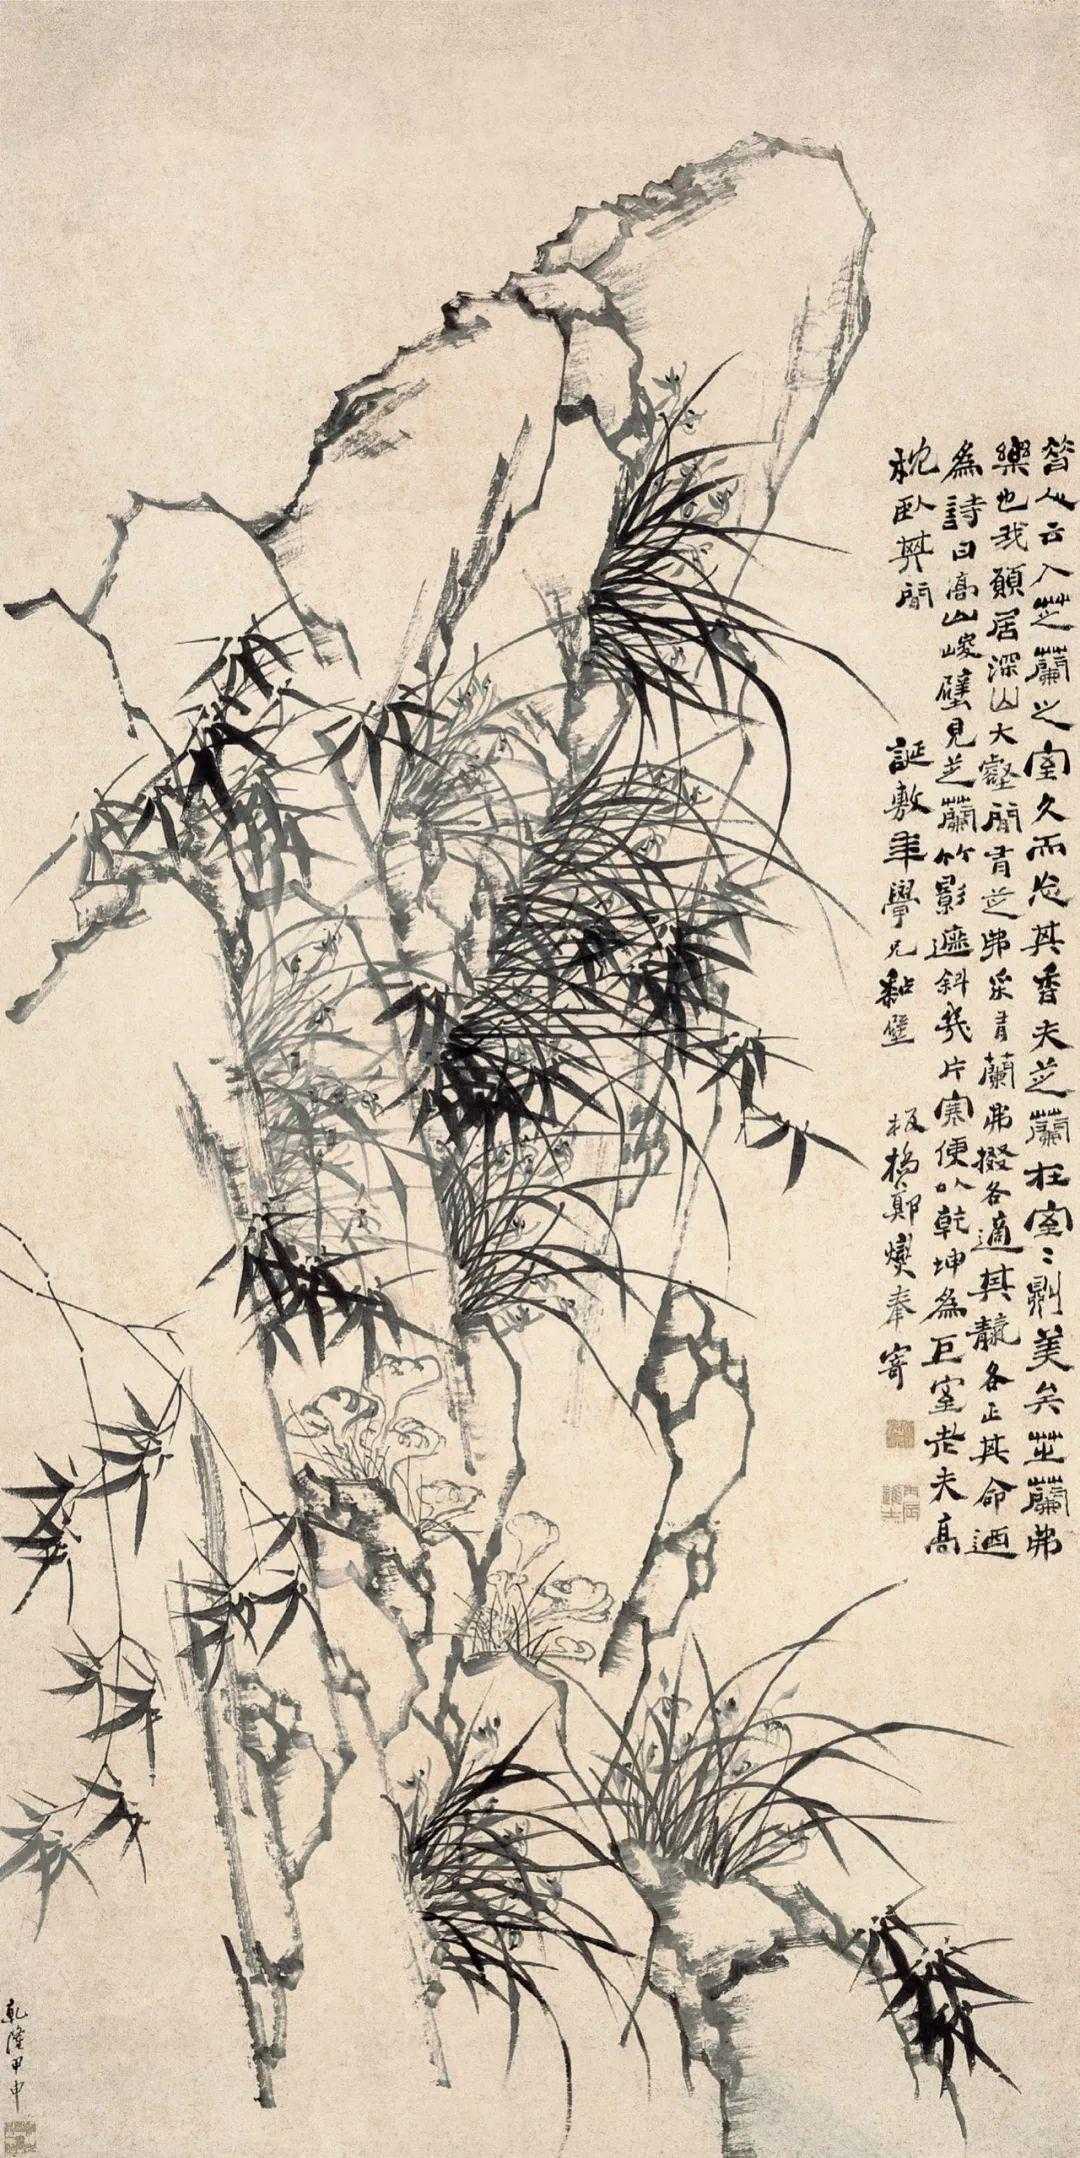 昔人云入芝蘭之室久而忘其香夫芝蘭在室〻則美矣芝蘭弗
樂也我願居深山大壑間有芝弗采有蘭弗掇各適其靜各正其命迺
為詩曰高山峻壁見芝蘭竹影遮斜幾片寒便以乾坤為巨室老夫高
枕臥其間 誕敷年學兄黏壁 板橋鄭燮奉寄
乾隆甲申